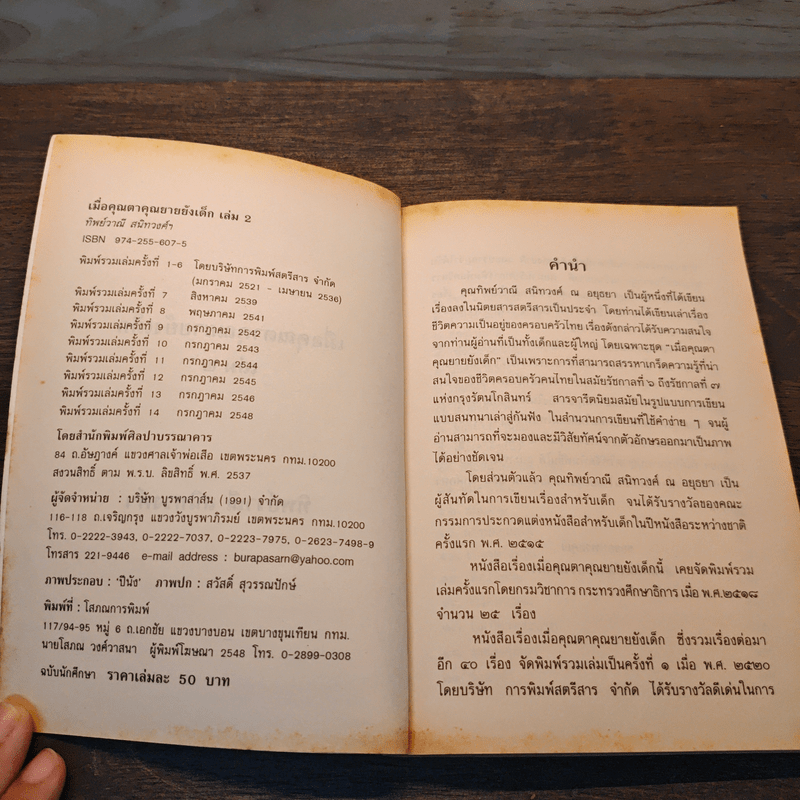 เมื่อคุณตาคุณยายยังเด็ก เล่ม 2
ทิพย์วาณี สนิทวงศ์ฯ
ISBN 974-255-607-5
พิมพ์รวมเล่มครั้งที่ 1-6 โดยบริษัทการพิมพ์สตรีสาร จำกัด
(มกราคม 2521 - เมษายน 2536)
พิมพ์รวมเล่มครั้งที่ 7 สิงหาคม 2539
พิมพ์รวมเล่มครั้งที่ 8 พฤษภาคม 2541
พิมพ์รวมเล่มครั้งที่ 9 กรกฎาคม 2542
พิมพ์รวมเล่มครั้งที่ 10 กรกฎาคม 2543
พิมพ์รวมเล่มครั้งที่ 11 กรกฎาคม 2544
พิมพ์รวมเล่มครั้งที่ 12 กรกฎาคม 2545
พิมพ์รวมเล่มครั้งที่ 13 กรกฎาคม 2546
พิมพ์รวมเล่มครั้งที่ 14 กรกฎาคม 2548
โดยสำนักพิมพ์ศิลปาบรรณาคาร
84 ถ.อัษฎางค์ แขวงศาลเจ้าพ่อเสือ เขตพระนคร กทม.10200
สงวนสิทธิ์ ตาม พ.ร.บ. ลิขสิทธิ์ พ.ศ. 2537
ผู้จัดจำหน่าย : บริษัท บูรพาสาส์น (1991) จำกัด
116-118 ถ.เจริญกรุง แขวงวังบูรพาภิรมย์ เขตพระนคร กทม.10200
โทร. 0-2222-3943, 0-2222-7037, 0-2223-7975, 0-2623-7498-9
โทรสาร 221-9446 e-mail address : burapasarn@yahoo.com
ภาพประกอบ : 'ปีนัง' ภาพปก : สวัสดิ์ สุวรรณปักษ์
พิมพ์ที่ : โสภณการพิมพ์
117/94-95 หมู่ 6 ถ.เอกชัย แขวงบางบอน เขตบางขุนเทียน กทม.
นายโสภณ วงศ์วาสนา ผู้พิมพ์โฆษณา 2548 โทร. 0-2899-0308
ฉบับนักศึกษา ราคาเล่มละ 50 บาท
คำนำ
คุณทิพย์วาณี สนิทวงศ์ ณ อยุธยา เป็นผู้หนึ่งที่ได้เขียน
เรื่องลงในนิตยสารสตรีสารเป็นประจำ โดยท่านได้เขียนเล่าเรื่อง
ชีวิตความเป็นอยู่ของครอบครัวไทย เรื่องดังกล่าวได้รับความสนใจ
จากท่านผู้อ่านที่เป็นทั้งเด็กและผู้ใหญ่ โดยเฉพาะชุด "เมื่อคุณตา
คุณยายยังเด็ก" เป็นเพราะการที่สามารถสรรหาเกร็ดความรู้ที่น่า
สนใจของชีวิตครอบครัวคนไทยในสมัยรัชกาลที่ ๖ ถึงรัชกาลที่ ๗
แห่งกรุงรัตนโกสินทร์ สารจารีตนิยมสมัยในรูปแบบการเขียน
แบบสนทนาเล่าสู่กันฟัง ในสำนวนการเขียนที่ใช้คำง่าย ๆ จนผู้
อ่านสามารถที่จะมองและมีวิสัยทัศน์จากตัวอักษรออกมาเป็นภาพ
ได้อย่างชัดเจน
โดยส่วนตัวแล้ว คุณทิพย์วาณี สนิทวงศ์ ณ อยุธยา เป็น
ผู้สันทัดในการเขียนเรื่องสำหรับเด็ก จนได้รับรางวัลของคณะ
กรรมการประกวดแต่งหนังสือสำหรับเด็กในปีหนังสือระหว่างชาติ
ครั้งแรก พ.ศ. ๒๕๑๕
หนังสือเรื่องเมื่อคุณตาคุณยายยังเด็กนี้ เคยจัดพิมพ์รวม
เล่มครั้งแรกโดยกรมวิชาการ กระทรวงศึกษาธิการ เมื่อ พ.ศ.๒๕๑๘
จำนวน ๒๕ เรื่อง
หนังสือเรื่องเมื่อคุณตาคุณยายยังเด็ก ซึ่งรวมเรื่องต่อมา
อีก ๔๐ เรื่อง จัดพิมพ์รวมเล่มเป็นครั้งที่ ๑ เมื่อ พ.ศ. ๒๕๒๐
โดยบริษัท การพิมพ์สตรีสาร จำกัด ได้รับรางวัลดีเด่นในการ